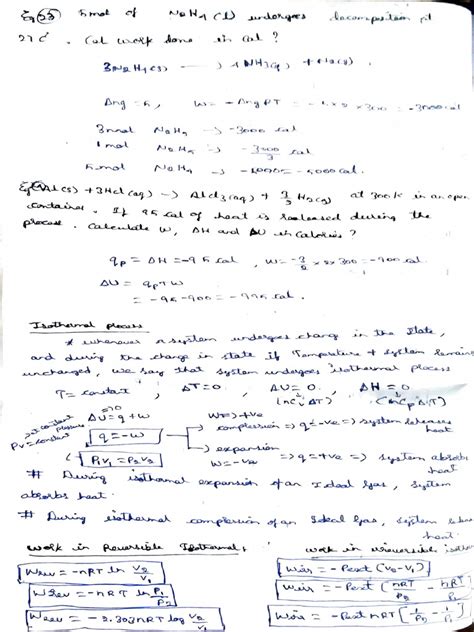 5 mol of N2H4 (l) undergoes decomposition at
27°C. Cal work done in cal?
3N2H4(s) → 4NH3(g) + N2(g).
Δng = 5, W = -ΔngRT = -5×2×300 = -3000 cal
3 mol N2H4 → -3000 cal
1 mol N2H4 → -3000/3 cal
5 mol N2H4 → -1000×5 = -5000 cal.
Al(s) + 3HCl(aq) → AlCl3(aq) + 3/2 H2(g) at 300 K in an open
container. If 95 cal of heat is released during the
process. Calculate W, ΔH and ΔU in Calories?
qp = ΔH = -95 cal, W = -3/2 × 2 × 300 = -900 cal
ΔU = qp + W
= -95 - 900 = -995 cal.
Isothermal process
* whenever a system undergoes change in the state,
and during the change in state if Temperature of system remains
unchanged, we say that system undergoes isothermal process
T = constant, ΔT = 0, ΔU = 0 (nCvΔT), ΔH = 0 (nCpΔT)
ΔU = q + W
PV = constant
q = -W
W = +ve
compression → q = -ve → system releases heat
expansion
W = -ve → q = +ve → system absorbs heat
P1V1 = P2V2
# During isothermal expansion of an Ideal gas, system
absorbs heat.
# During isothermal compression of an Ideal gas, system
heat.
work in Reversible Isothermal,
work in irreversible
Wrev = -nRT ln V2/V1
Wirr = -Pext (V2-V1)
Wrev = -nRT ln P1/P2
Wirr = -Pext (nRT/P2 - nRT/P1)
Wrev = -2.303nRT log V2/V1
Wirr = -Pext nRT [1/P2 - 1/P1]